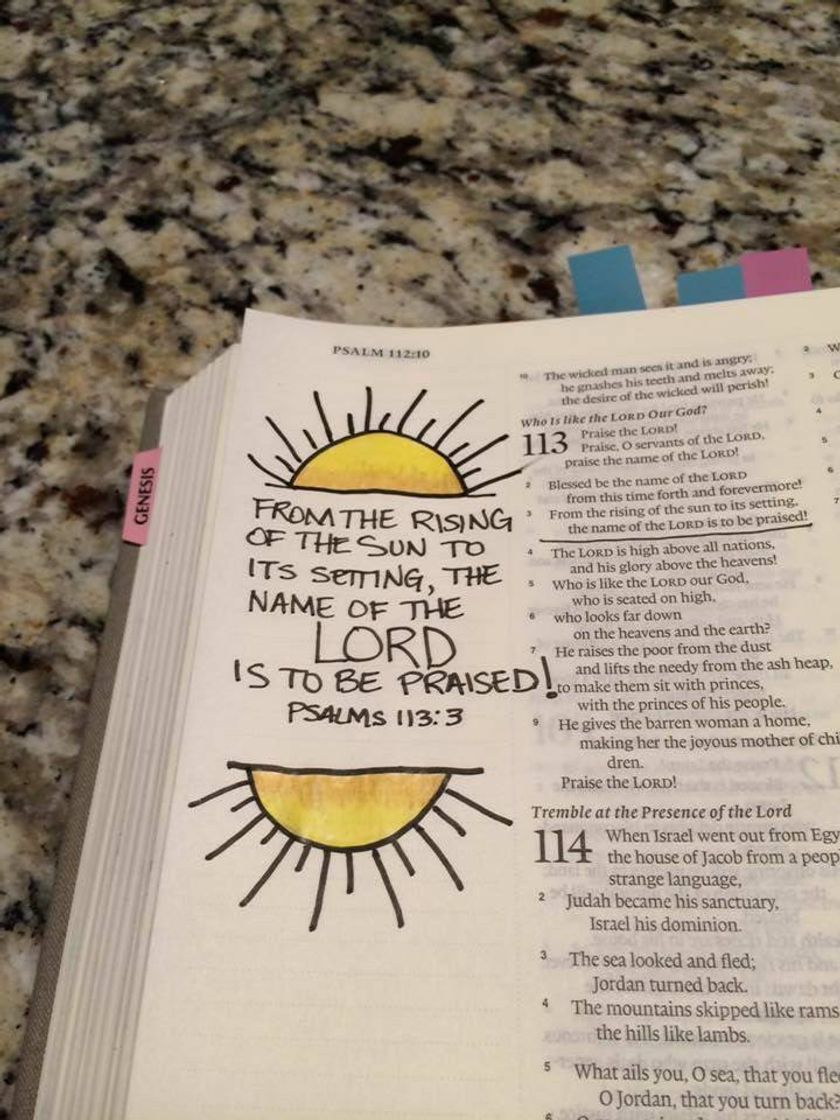 GENESIS
PSALM 112:10
FROM THE RISING
OF THE SUN TO
ITS SETTING, THE
NAME OF THE
LORD
IS TO BE PRAISED!
PSALMS 113:3
10 The wicked man sees it and is angry;
he gnashes his teeth and melts away;
the desire of the wicked will perish!
Who Is like the LORD Our God?
113 Praise the LORD!
Praise, O servants of the LORD,
praise the name of the LORD!
2 Blessed be the name of the LORD
from this time forth and forevermore!
3 From the rising of the sun to its setting,
the name of the LORD is to be praised!
4 The LORD is high above all nations,
and his glory above the heavens!
5 Who is like the LORD our God,
who is seated on high,
6 who looks far down
on the heavens and the earth?
7 He raises the poor from the dust
and lifts the needy from the ash heap,
to make them sit with princes,
with the princes of his people.
9 He gives the barren woman a home,
making her the joyous mother of chi
dren.
Praise the LORD!
Tremble at the Presence of the Lord
114 When Israel went out from Egy
the house of Jacob from a peop
strange language,
2 Judah became his sanctuary,
Israel his dominion.
3 The sea looked and fled;
Jordan turned back.
4 The mountains skipped like rams
the hills like lambs.
5 What ails you, O sea, that you fle
O Jordan, that you turn back
6
2 W
3
4
5
6
7